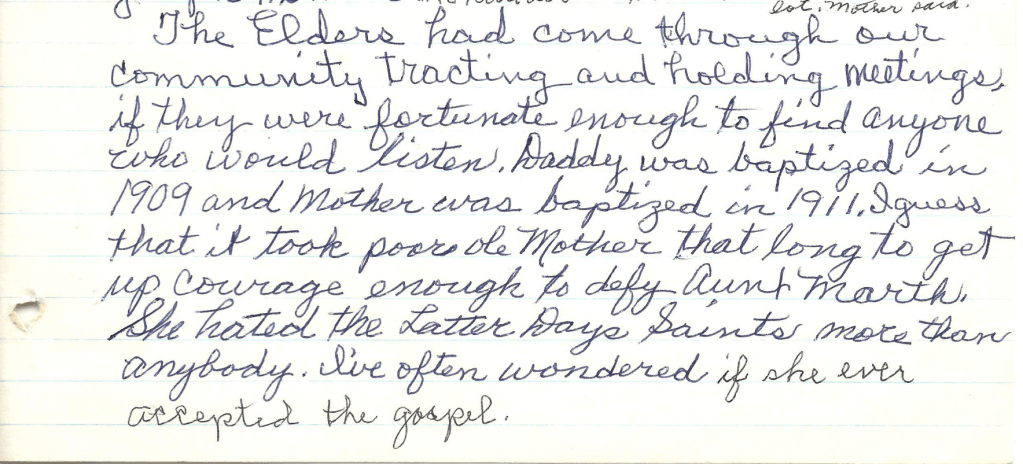 lot. Mother said.
The Elders had come through our
community tracting and holding meetings,
if they were fortunate enough to find anyone
who would listen. Daddy was baptized in
1909 and Mother was baptized in 1911. I guess
that it took poor ole Mother that long to get
up courage enough to defy Aunt Marth.
She hated the Latter Days Saints more than
anybody. I've often wondered if she ever
accepted the gospel.